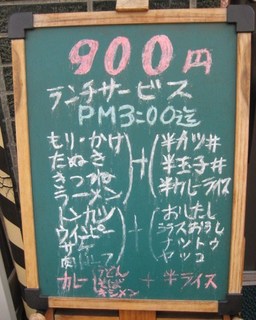 900円
ランチサービス
PM3:00迄
もり・かけ
たぬき
きつね
ラーメン
+
半カツ丼
半玉子丼
半カレーライス
トンカツ
+
おしたし
ナットウ
ヤッコ
カレー
うどん
そば
キシメン
+ 半ライス